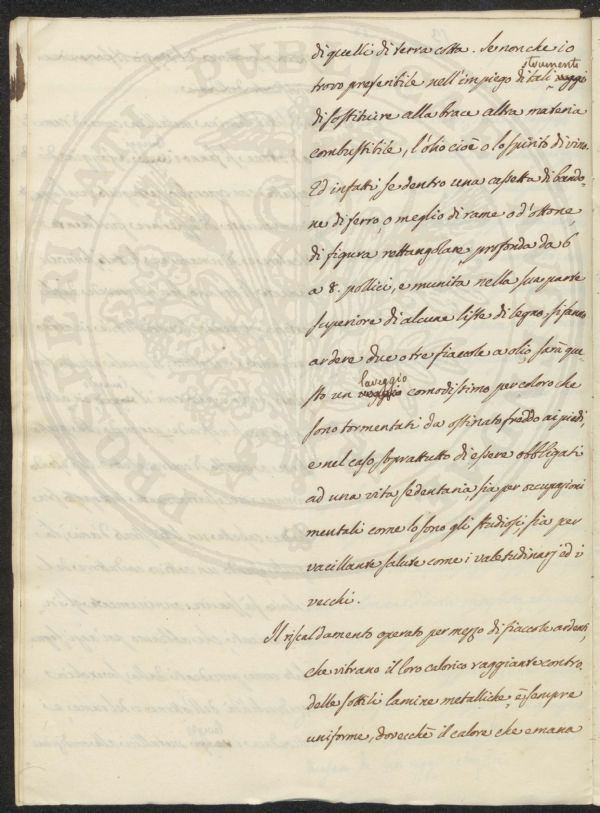 di quelli di terra cotta. Se non che io
trovo preferibile nell'impiego di tali veggi strumenti
di sostituire alla brace altra materia
combustibile, l'olio cioè o lo spirito di vino.
Ed infatti se dentro una cassetta di bando-
ne di ferro, o meglio di rame o d'ottone,
di figura rettangolare, profonda da 6
a 8. pollici, e munita nella sua parte
superiore di alcune liste di legno, si fanno
ardere due o tre fiaccole a olio, sarà que-
sto un veggio laveggio comodissimo per coloro che
sono tormentati da ostinato freddo ai piedi,
e nel caso soprattutto di essere obbligati
ad una vita sedentaria, sia per occupazioni
mentali come lo sono gli studiosi, sia per
vacillante salute come i valetudinarj ed i
vecchi.
Il riscaldamento operato per mezzo di fiaccole ardenti,
che vibrano il loro calorico raggiante contro
delle sottili lamine metalliche, è sempre
uniforme, dovecchè il calore che emana
PROSPERINAMI PUBL